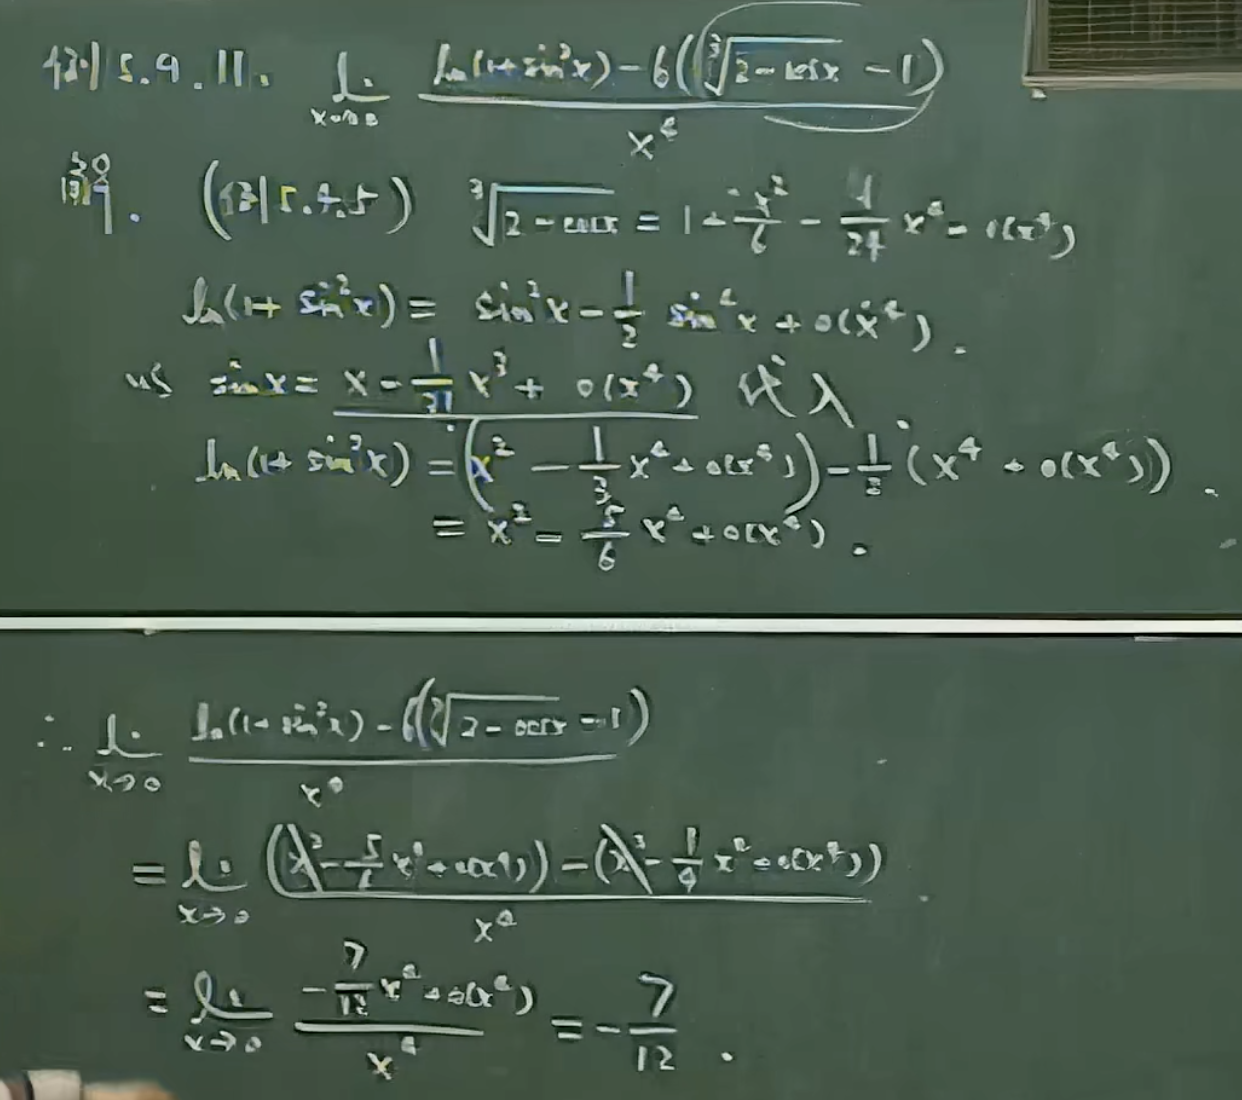 例5.9.11. lim x→0 (ln(1+sin²x)-6(∛(2-cosx) -1))/x⁴
解. (例5.9.5) ∛(2-cosx) = 1+x²/6 - 1/24 x⁴+o(x⁴)
ln(1+sin²x)= sin²x-1/2 sin⁴x+o(x⁴).
sinx= x-1/3! x³+o(x⁴) 代入
ln(1+sin²x)=(x²-1/3 x⁴+o(x⁴))-1/2(x⁴+o(x⁴)).
= x²-5/6 x⁴+o(x⁴).
∴ lim x→0 (ln(1+sin²x)-6(∛(2-cosx) -1))/x⁴
= lim x→0 ((x²-5/6 x⁴+o(x⁴))-(x²-1/4 x⁴+o(x⁴)))/x⁴
= lim x→0 (-7/12 x⁴+o(x⁴))/x⁴ = -7/12.